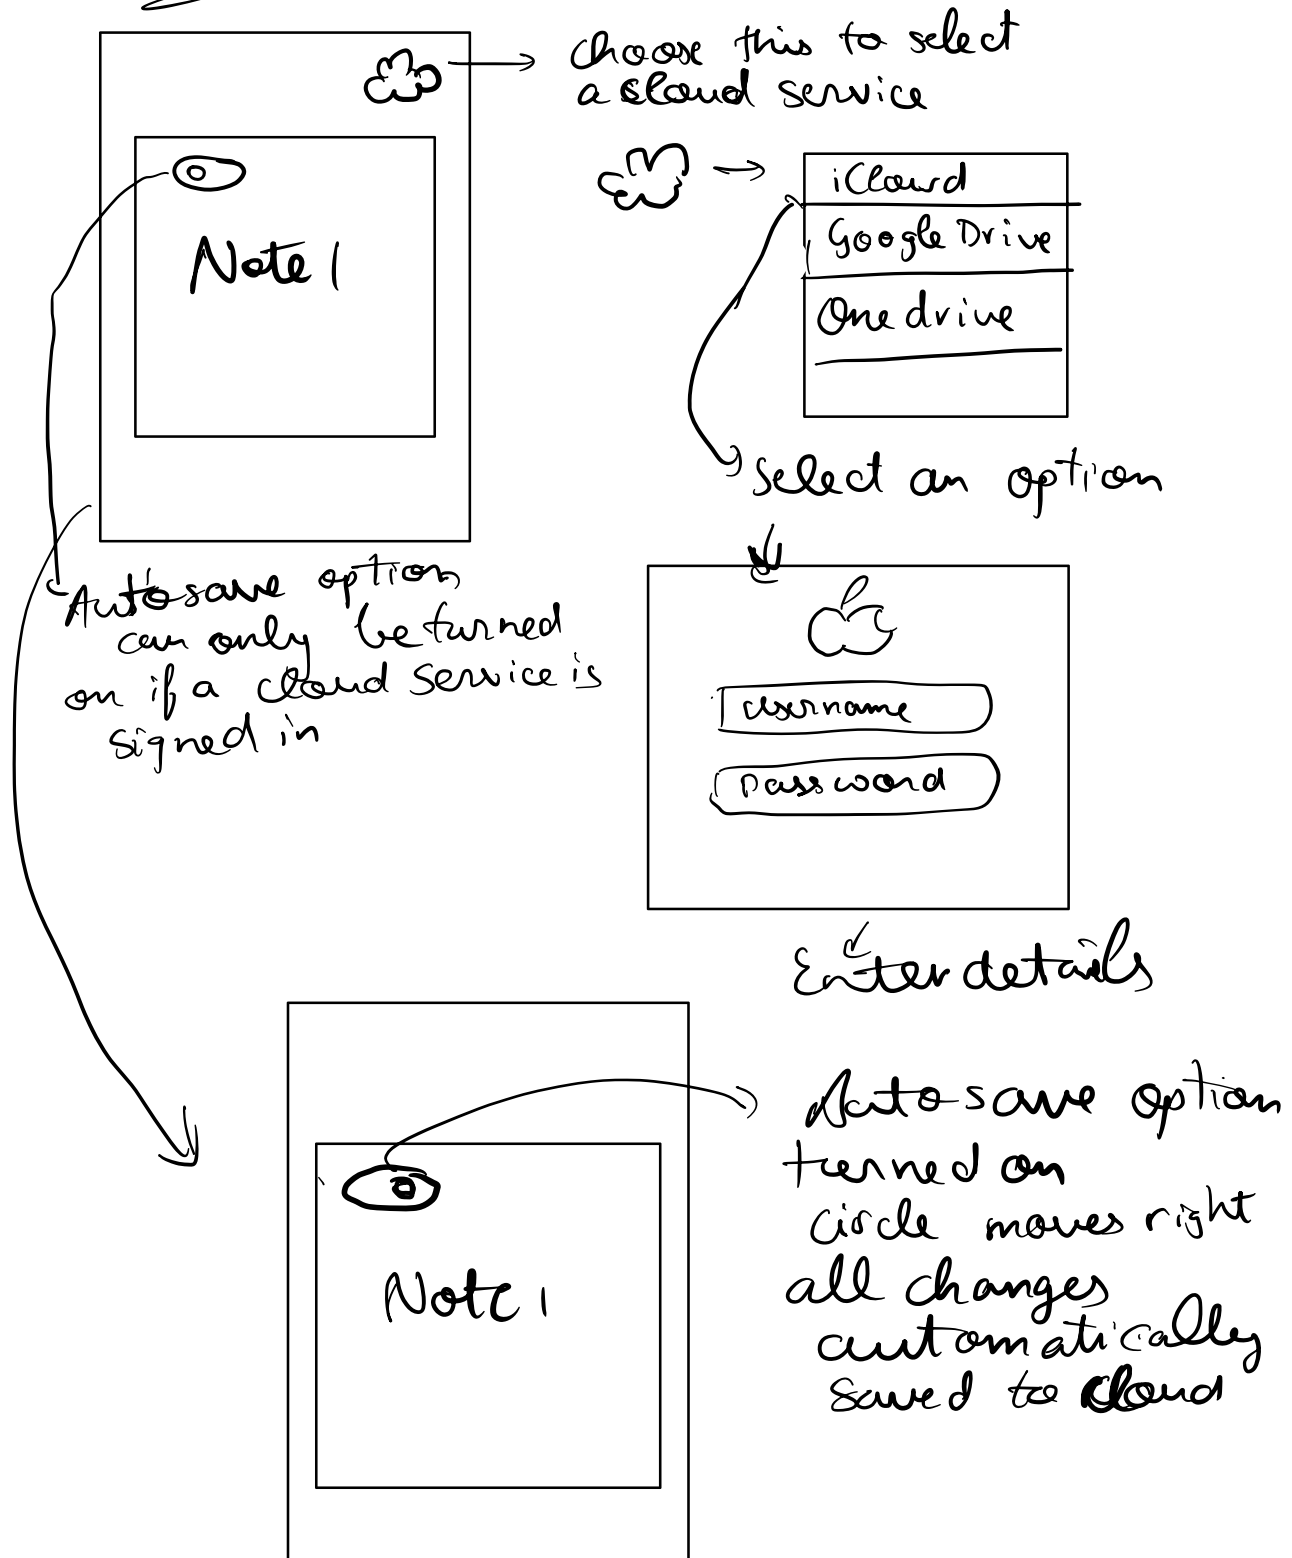 choose this to select
a cloud service
Note 1
iCloud
Google Drive
Onedrive
Select an option
Auto save option
can only be turned
on if a cloud service is
signed in
username
password
Enter details
Auto-save option
turned on
circle moves right
all changes
automatically
saved to cloud
Note 1